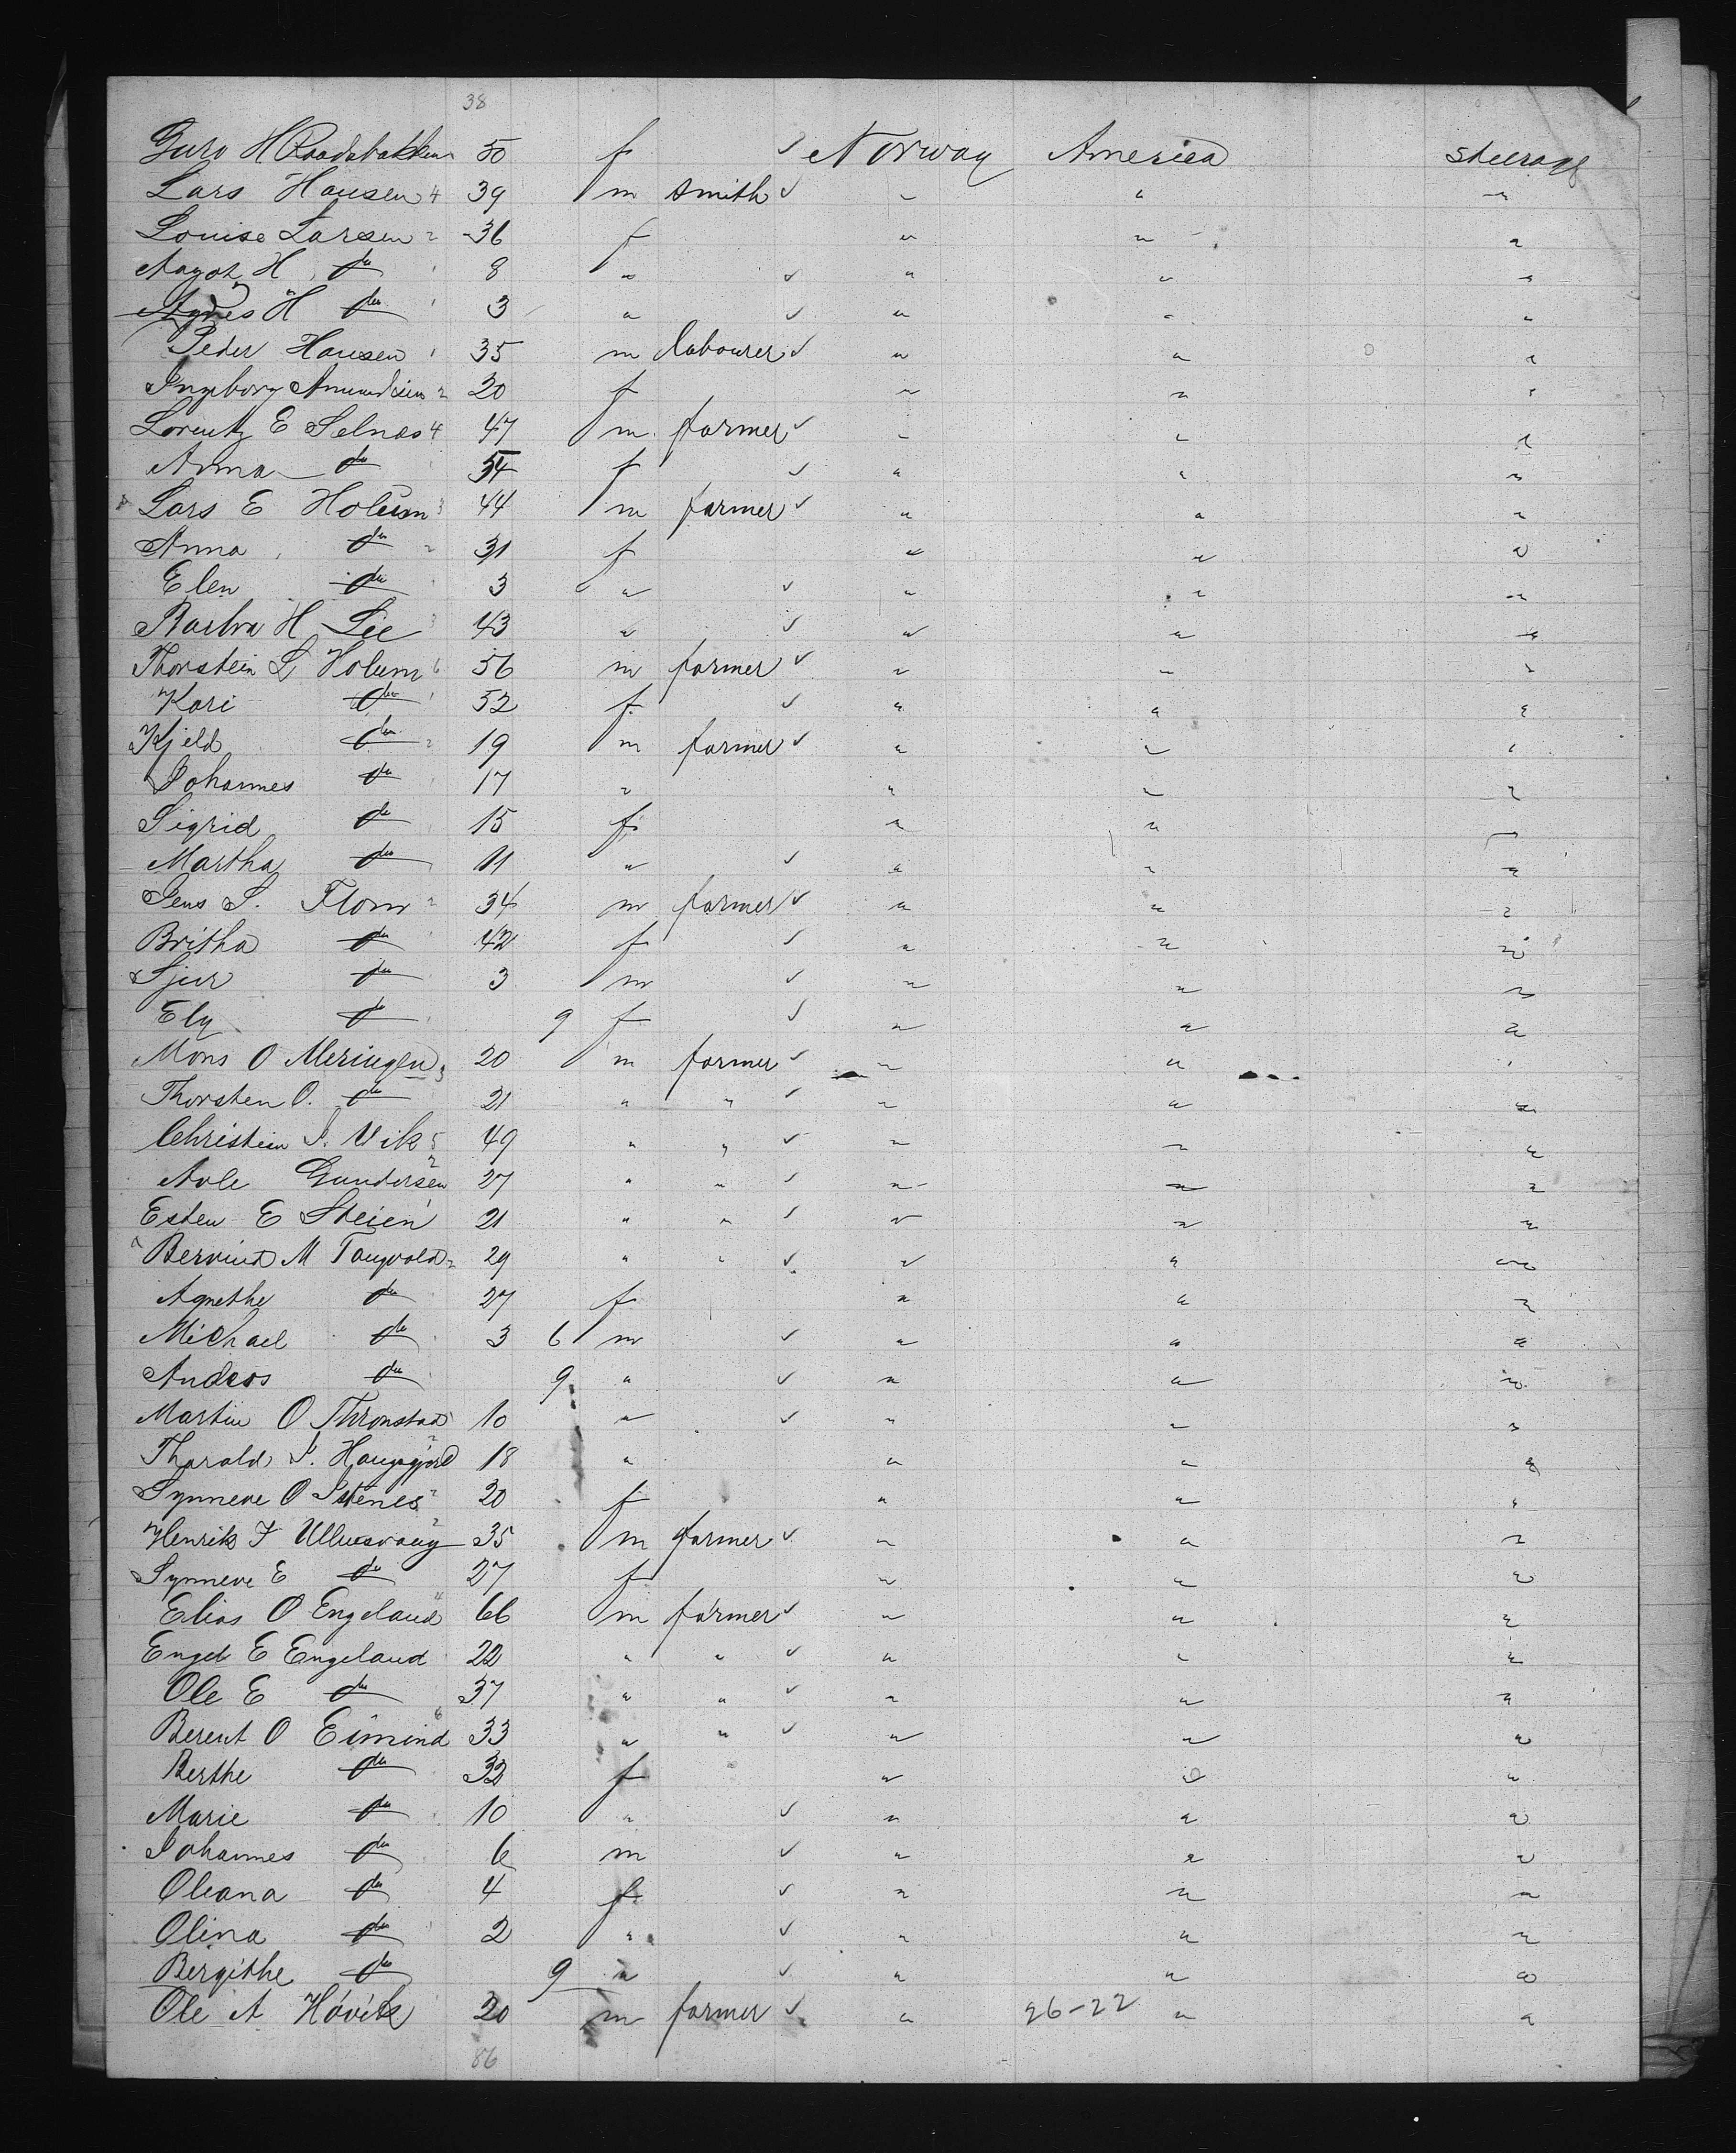 38
Guro H Raadsbakken 50 f ✓ Norway America steerage
Lars Hansen 4 39 m smith ✓ " " "
Louise Larsen 2 36 f " " "
Aagot H do 1 8 " ✓ " " "
Agnes H do 1 3 " ✓ " " "
Peder Hansen 1 35 m labourer ✓ " " "
Ingeborg Amundsen 2 20 f " " "
Lorentz E Selnas 4 47 m farmer ✓ " " "
Anna do 54 f ✓ " " "
Lars E Holum 3 44 m farmer ✓ " " "
Anna do 2 31 f " " "
Elen do 3 " ✓ " " "
Barbra H Lie 3 43 " ✓ " " "
Thorstein L Holum 6 56 m farmer ✓ " " "
Kari do 1 52 f ✓ " " "
Kjeld do 2 19 m farmer ✓ " " "
Johannes do 17 " " " "
Sigrid do 15 f " " "
Martha do 11 " ✓ " " "
Jens S. Flom 2 34 m farmer ✓ " " "
Britha do 42 f ✓ " " "
Sjur do 3 m ✓ " " "
Ely do 9 f ✓ " " "
Mons O Meringen 3 20 m farmer ✓ " " "
Thorsten O. do 21 " " ✓ " " "
Christein J. Vik 5 49 " " ✓ " " "
Aole Gundersen 2 27 " " ✓ " " "
Esten E Steien 21 " " ✓ " " "
M Tangvold 2 29 " " ✓ " " "
Agnethe do 27 f " " "
Michael do 3 6 m ✓ " " "
Anders do 9 " ✓ " " "
Martin O Thronstad 10 " ✓ " " "
Tharald J. 18 " " " "
Synneve O Stenes 2 20 f " " "
Henrik J 35 m farmer ✓ " " "
Synneve E do 27 f " " "
Elias O Engeland 4 66 m farmer ✓ " " "
Engel E Engeland 22 " " ✓ " " "
Ole E do 37 " " ✓ " " "
Berent O Eimind 6 33 " " ✓ " " "
Berthe do 32 f " " "
Marie do 10 " ✓ " " "
Johannes do 6 m ✓ " " "
Oleana do 4 f ✓ " " "
Olina do 2 " ✓ " " "
Bergithe do 9 " ✓ " " "
Ole A Hövik 20 m farmer ✓ " 26-22 " "
86